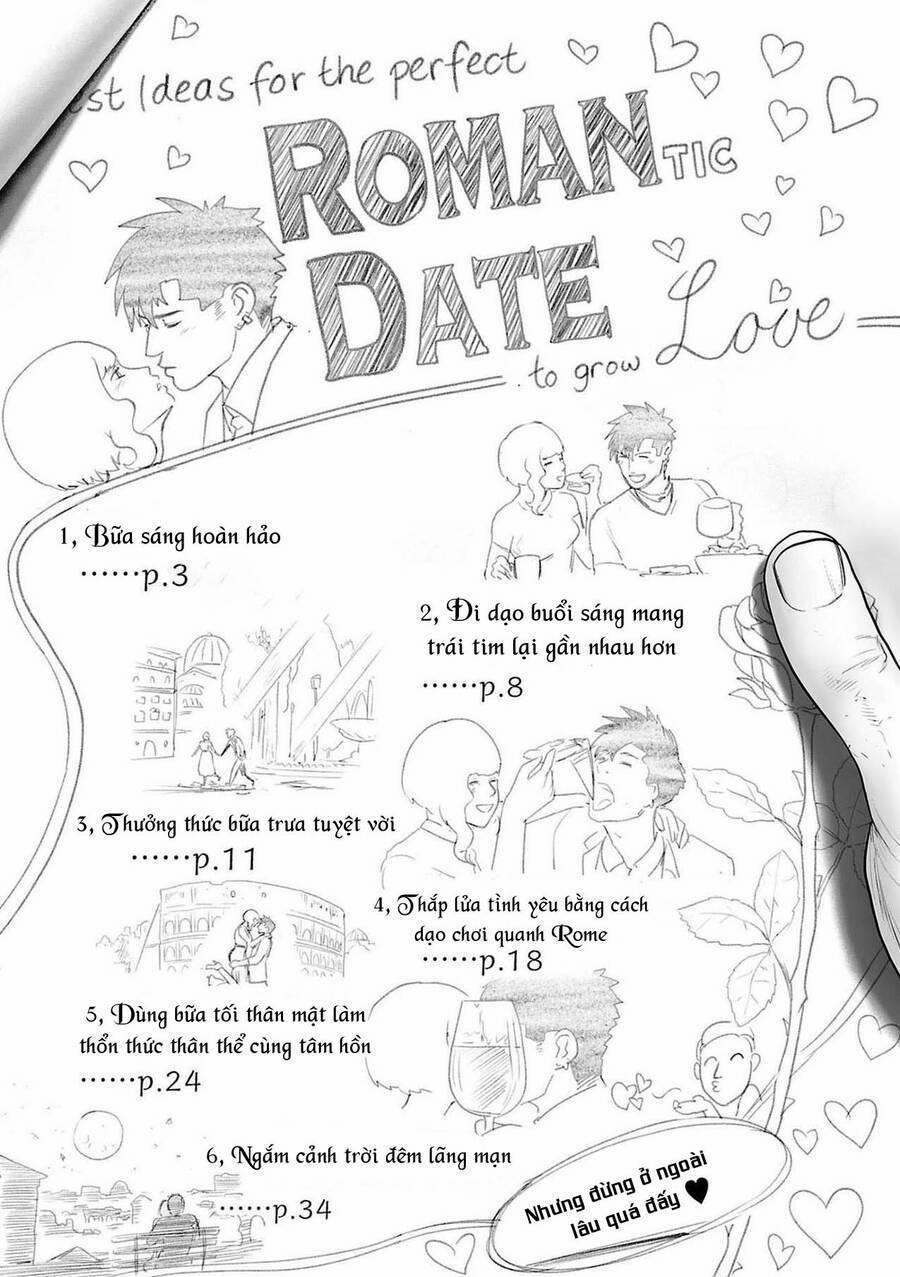 est Ideas for the perfect
ROMANTIC
DATE
to grow Love
1, Bữa sáng hoàn hảo
……p.3
2, Đi dạo buổi sáng mang
trái tim lại gần nhau hơn
……p.8
3, Thưởng thức bữa trưa tuyệt vời
……p.11
4, Thắp lửa tình yêu bằng cách
dạo chơi quanh Rome
……p.18
5, Dùng bữa tối thân mật làm
thổn thức thân thể cùng tâm hồn
……p.24
6, Ngắm cảnh trời đêm lãng mạn
……p.34
Nhưng đừng ở ngoài
lâu quá đấy ♥